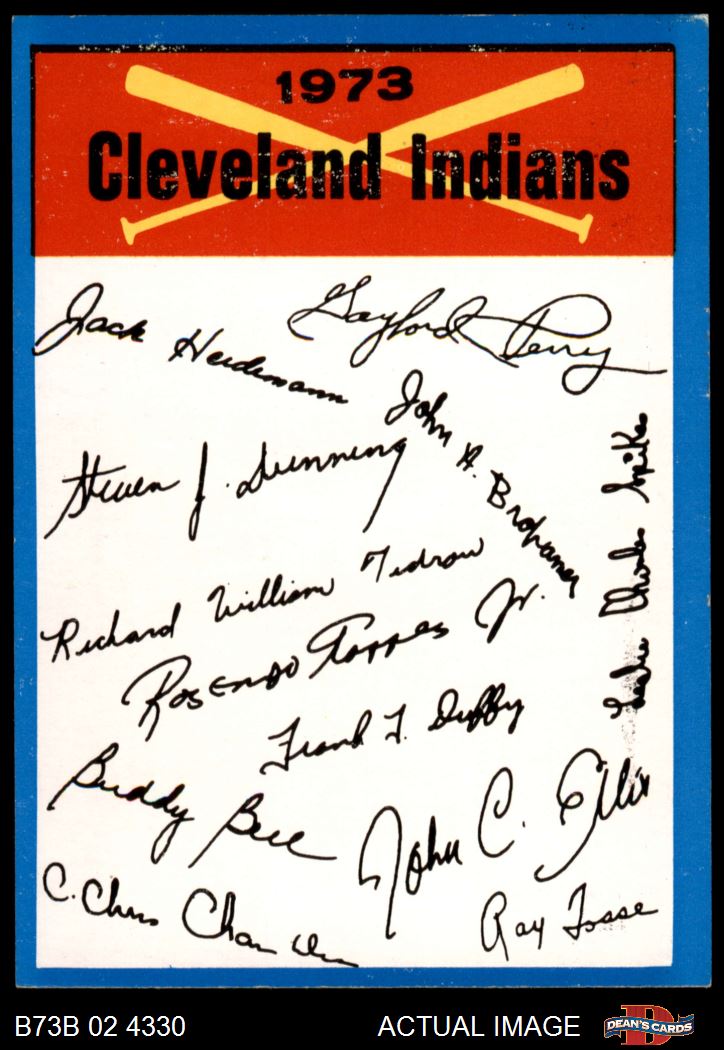 1973
Cleveland Indians
Jack Heidemann
Gaylord Perry
John A. Brohamer
Steven J. Dunning
Leslie Charles Spikes
Richard William Tidrow
Rosendo Torres Jr.
Frank T. Duffy
Buddy Bell
John C. Ellis
C. Chris Cham
Ray Fosse
B73B 02 4330
ACTUAL IMAGE
D
DEAN'S CARDS